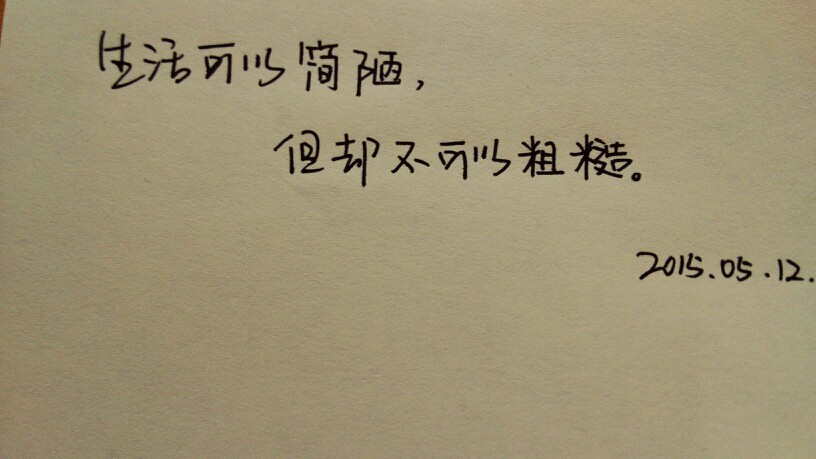 生活可以简陋，
但却不可以粗糙。
2015.05.12.